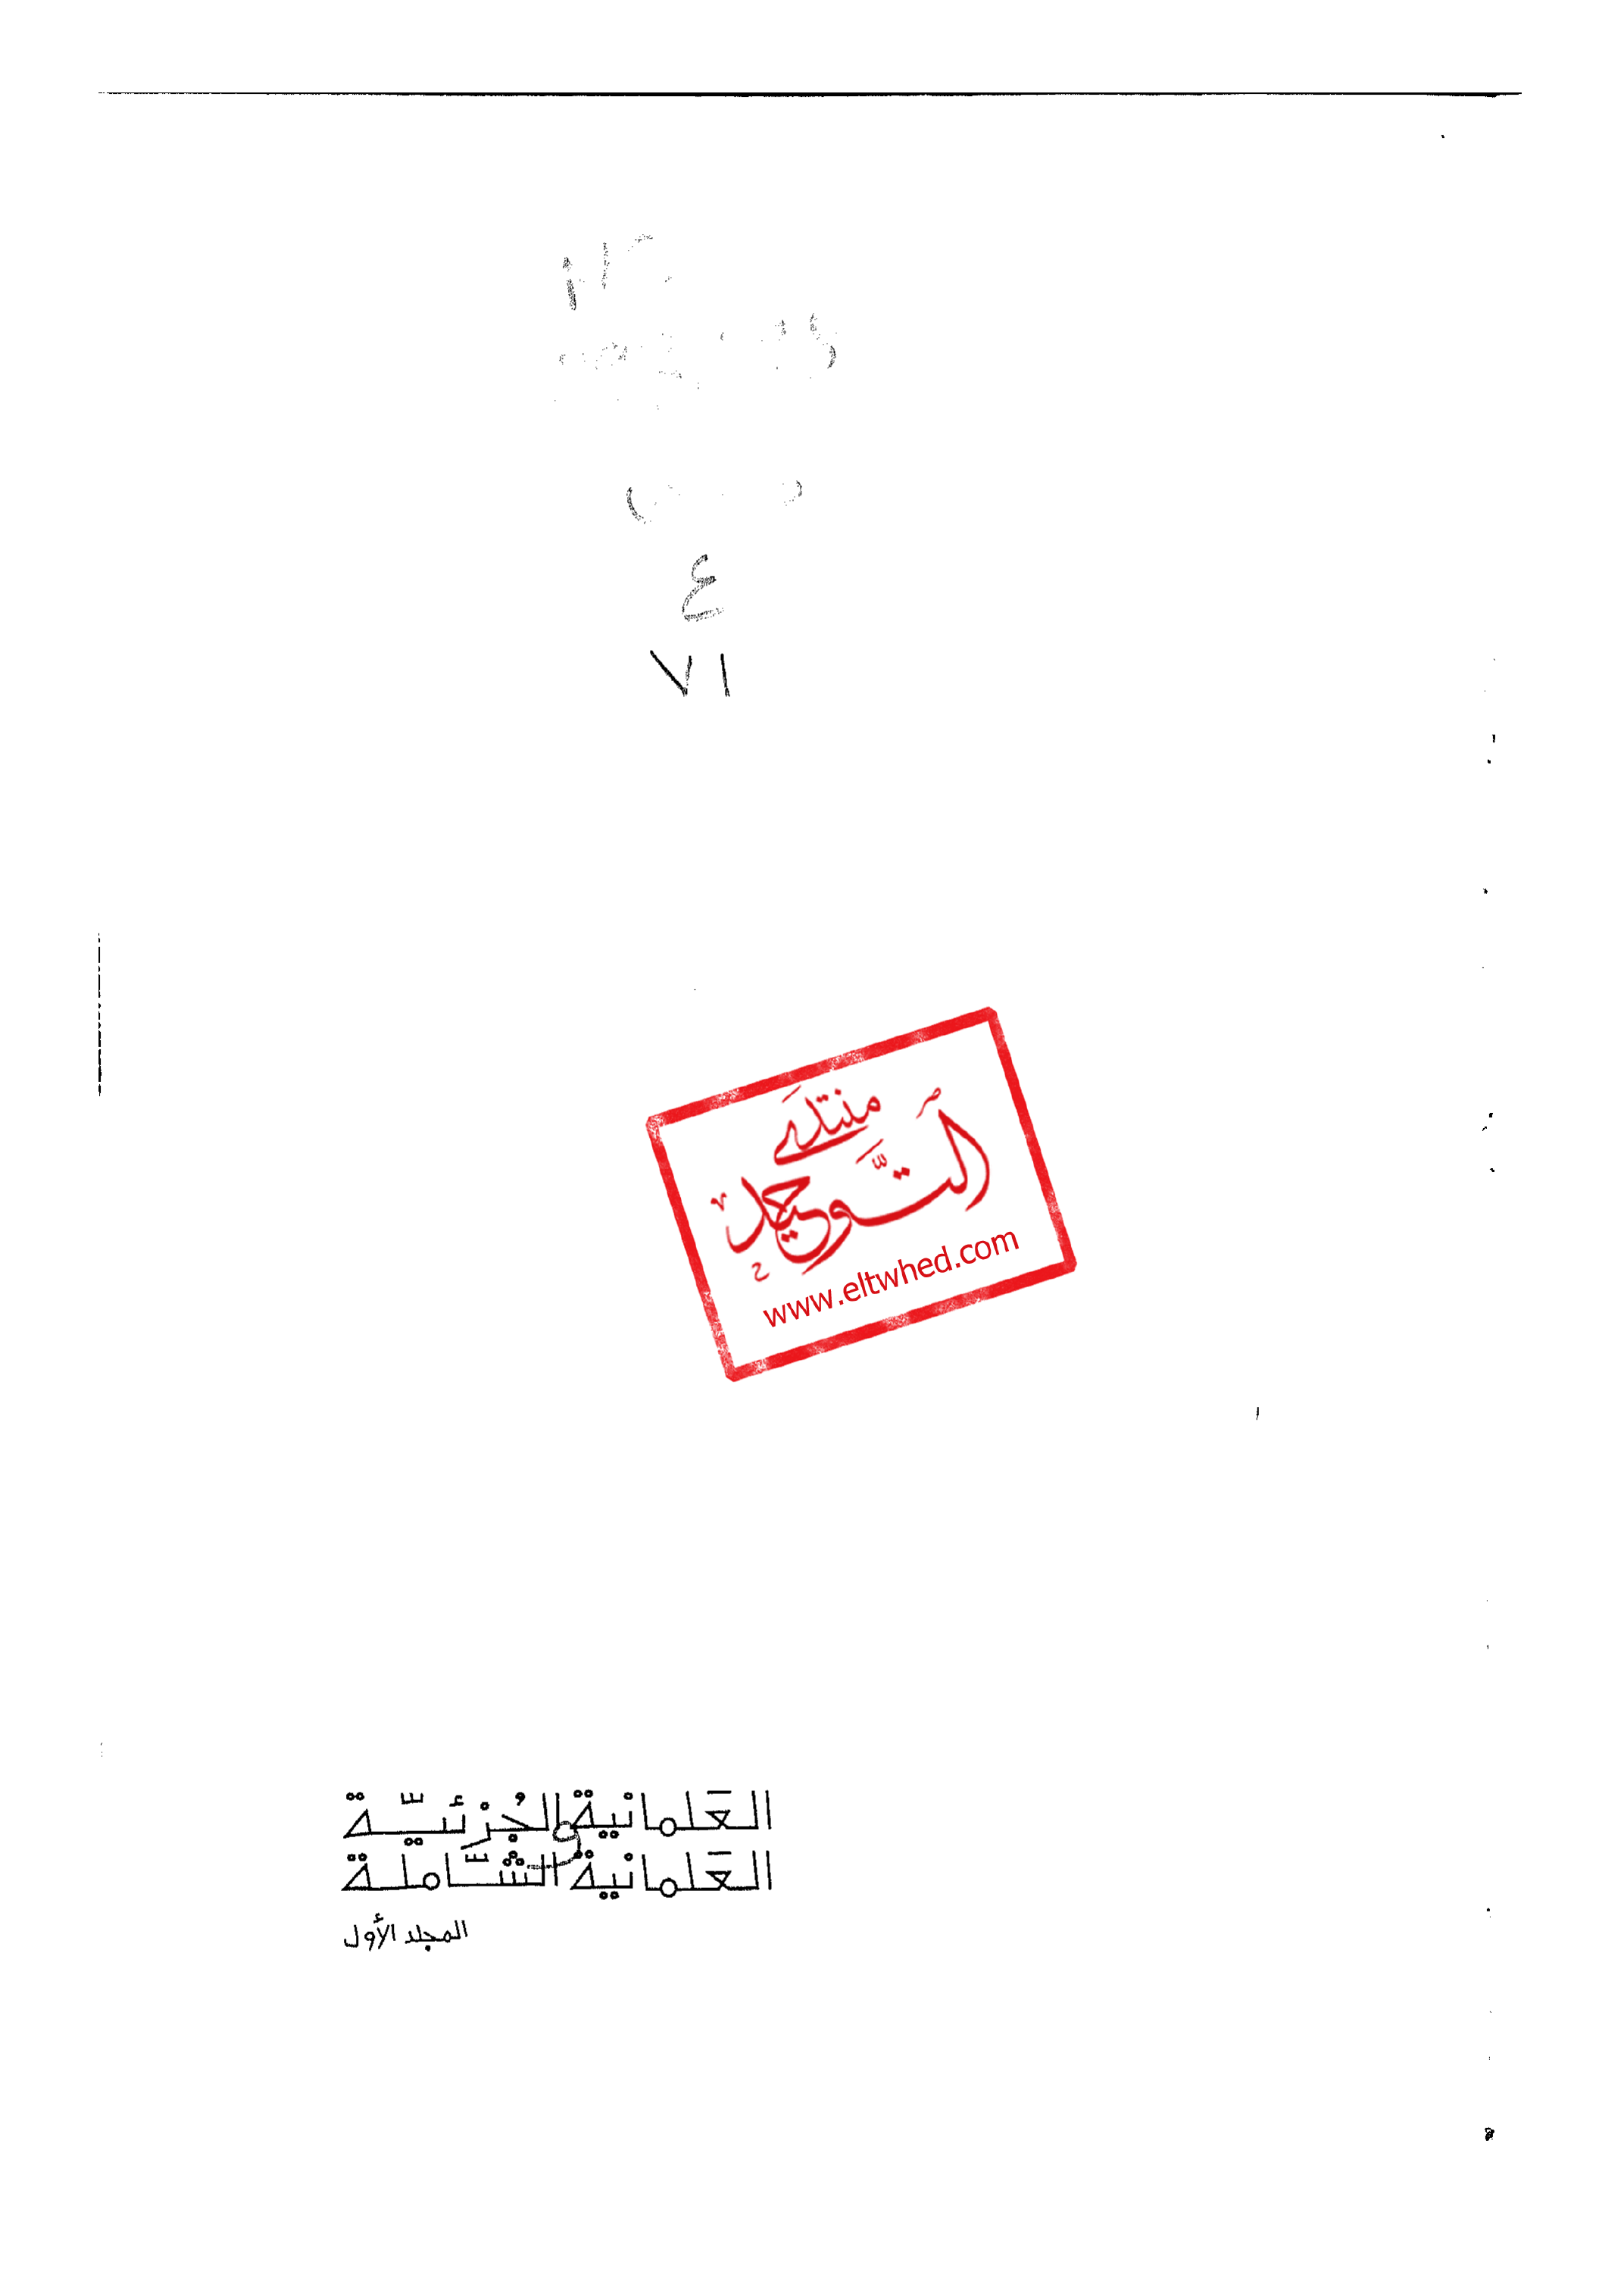 ع
٧١
منتدى
التَّوحيد
www.eltwhed.com
العَلمانية الجُزْئيّة
و
العَلمانية الشّاملة
المجلد الأول